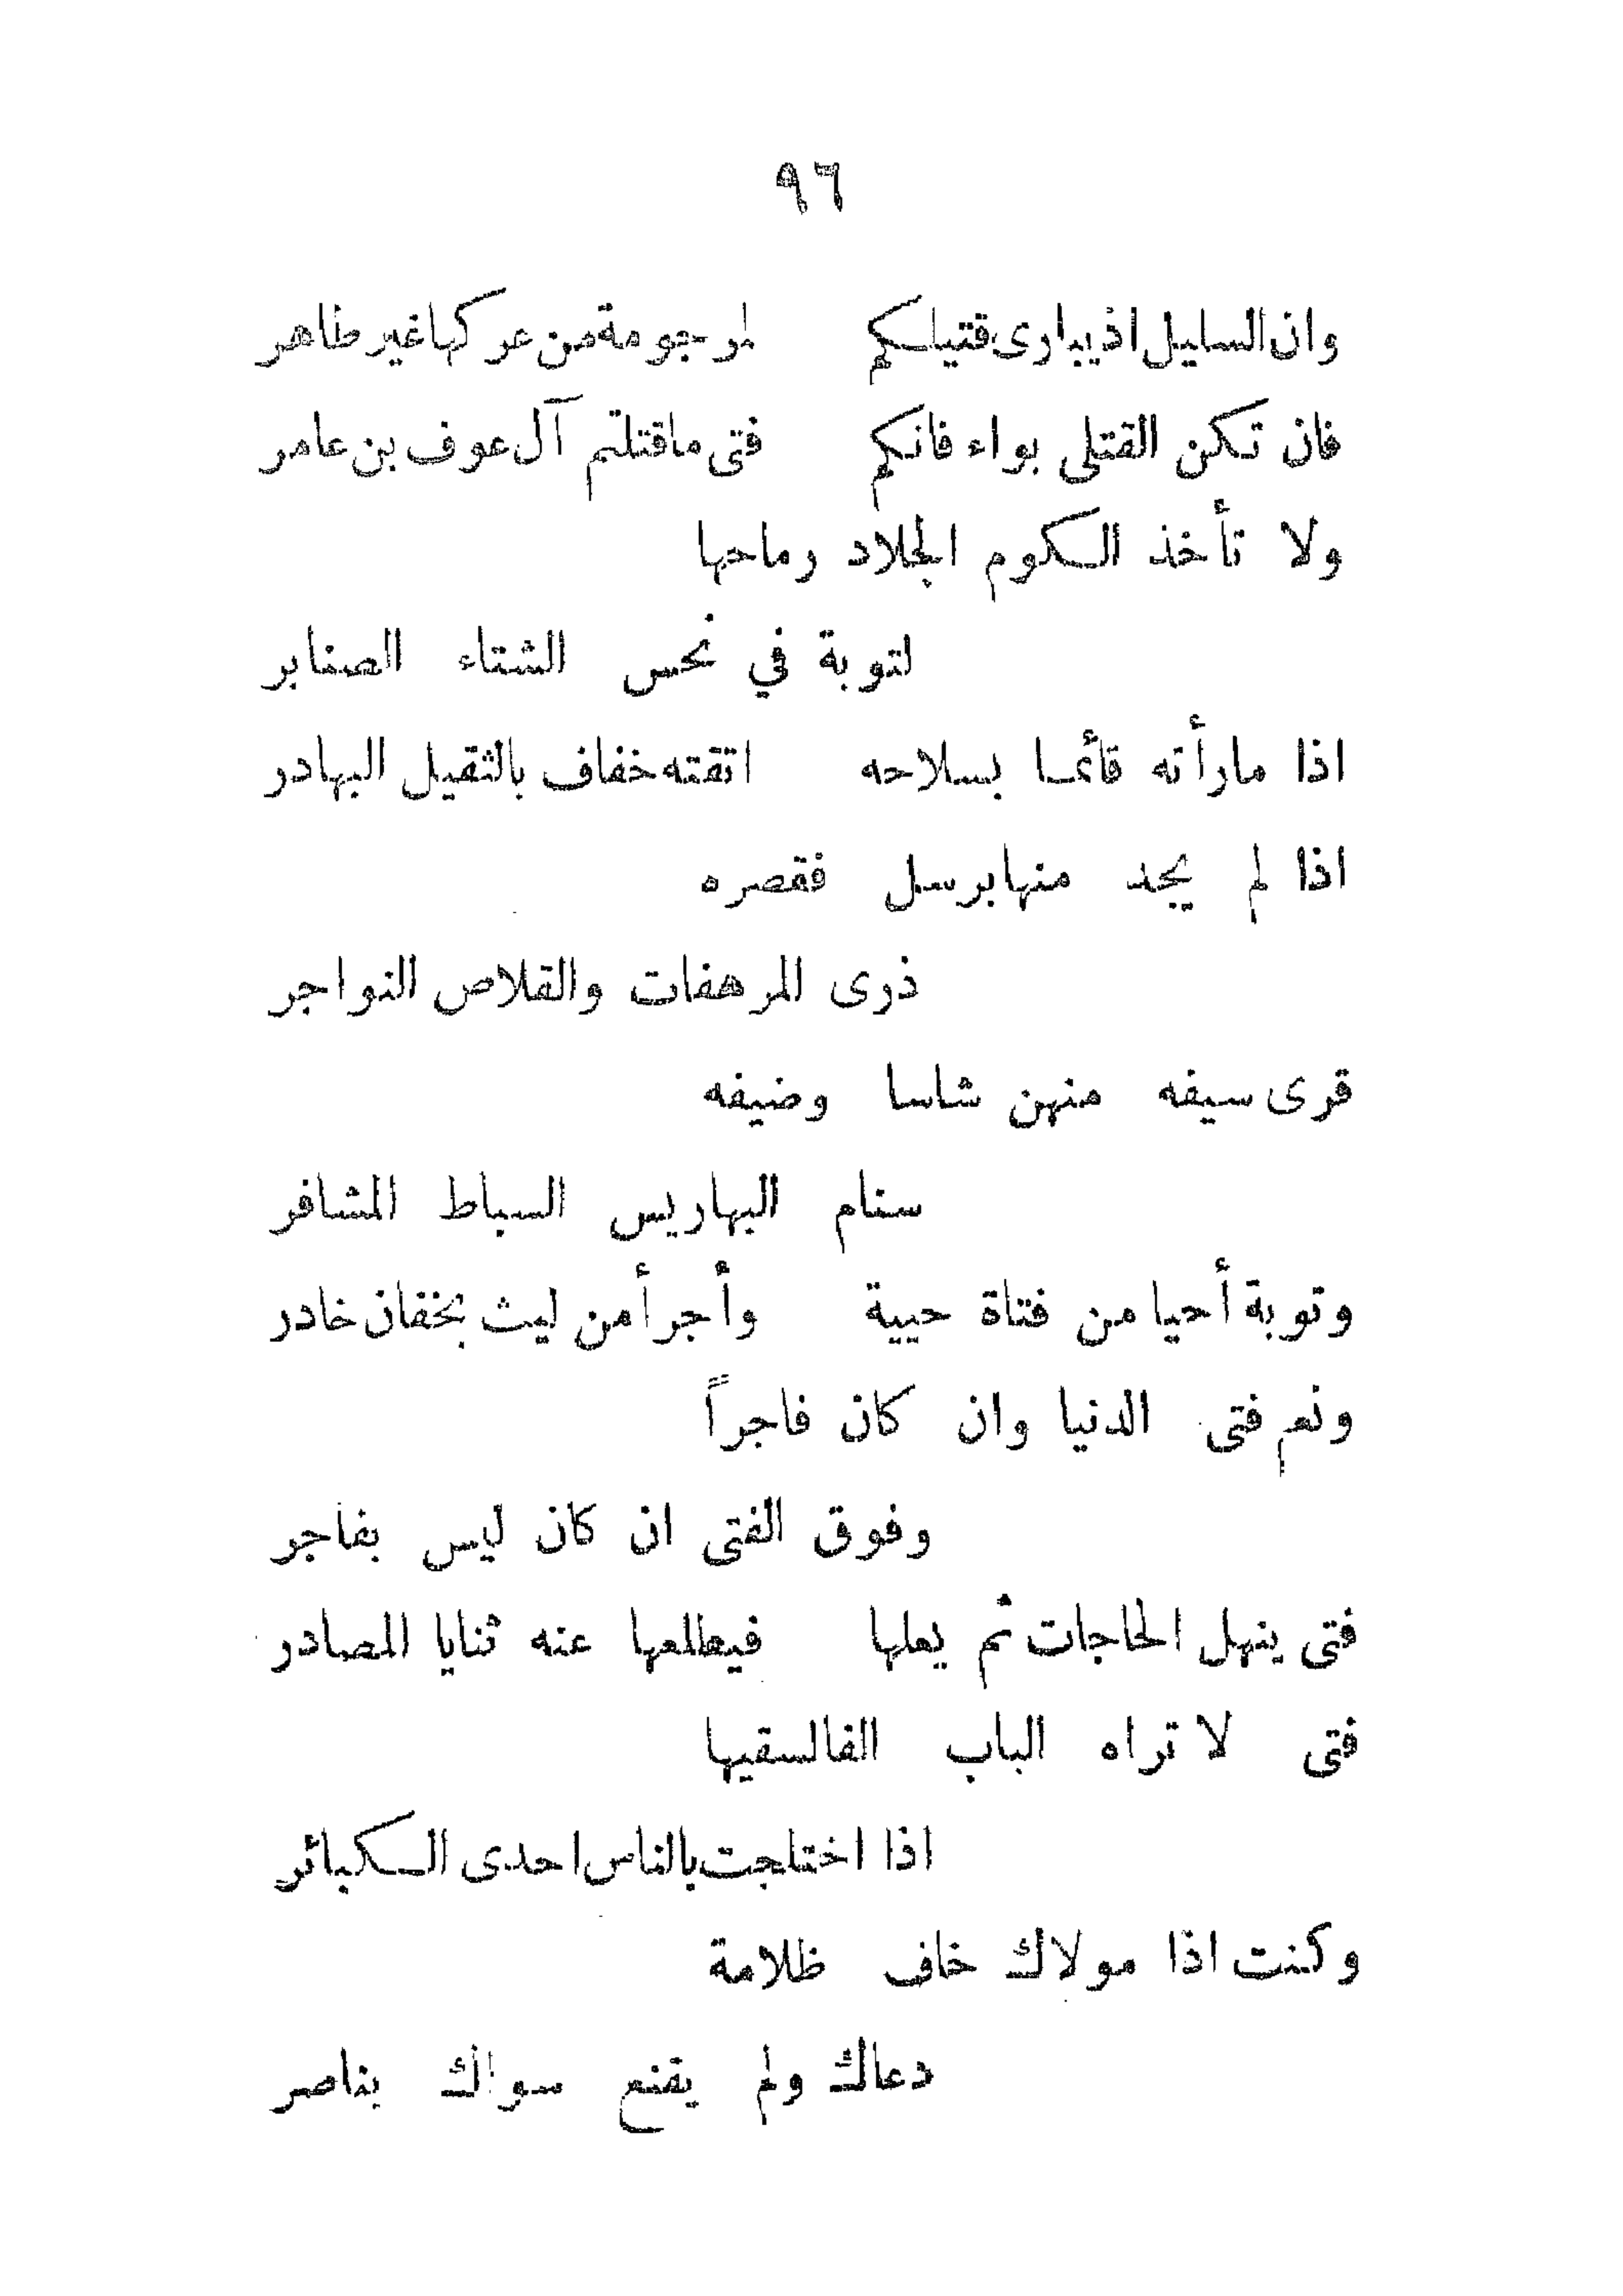 ٩٦
وان السليل اذ يبارى قتيلكم لمرجومة من عركها غير طاهر
فان تكن القتلى بواء فانكم فتى ما قتلتم آل عوف بن عامر
ولا تأخذ الكوم الجلاد رماحها
لتوبة في نحس الشتاء الصنابر
اذا ما رأته قائما بسلاحه اتقته خفاف بالثقيل البهادر
اذا لم يجد منها برسل فقصره
ذرى المرهفات والقلاص النواجر
قرى سيفه منهن شاسا وضيفه
سنام البهاريس السباط المشافر
وتوبة أحيا من فتاة حيية وأجرأ من ليث بخفان خادر
ونعم فتى الدنيا وان كان فاجراً
وفوق الفتى ان كان ليس بفاجر
فتى ينهل الحاجات ثم يعلها فيطلعها عنه ثنايا المصادر
فتى لا تراه الباب الفا لسقيها
اذا اختلجت بالناس احدى الكبائر
وكنت اذا مولاك خاف ظلامة
دعاك ولم يقنع سواك بناصر